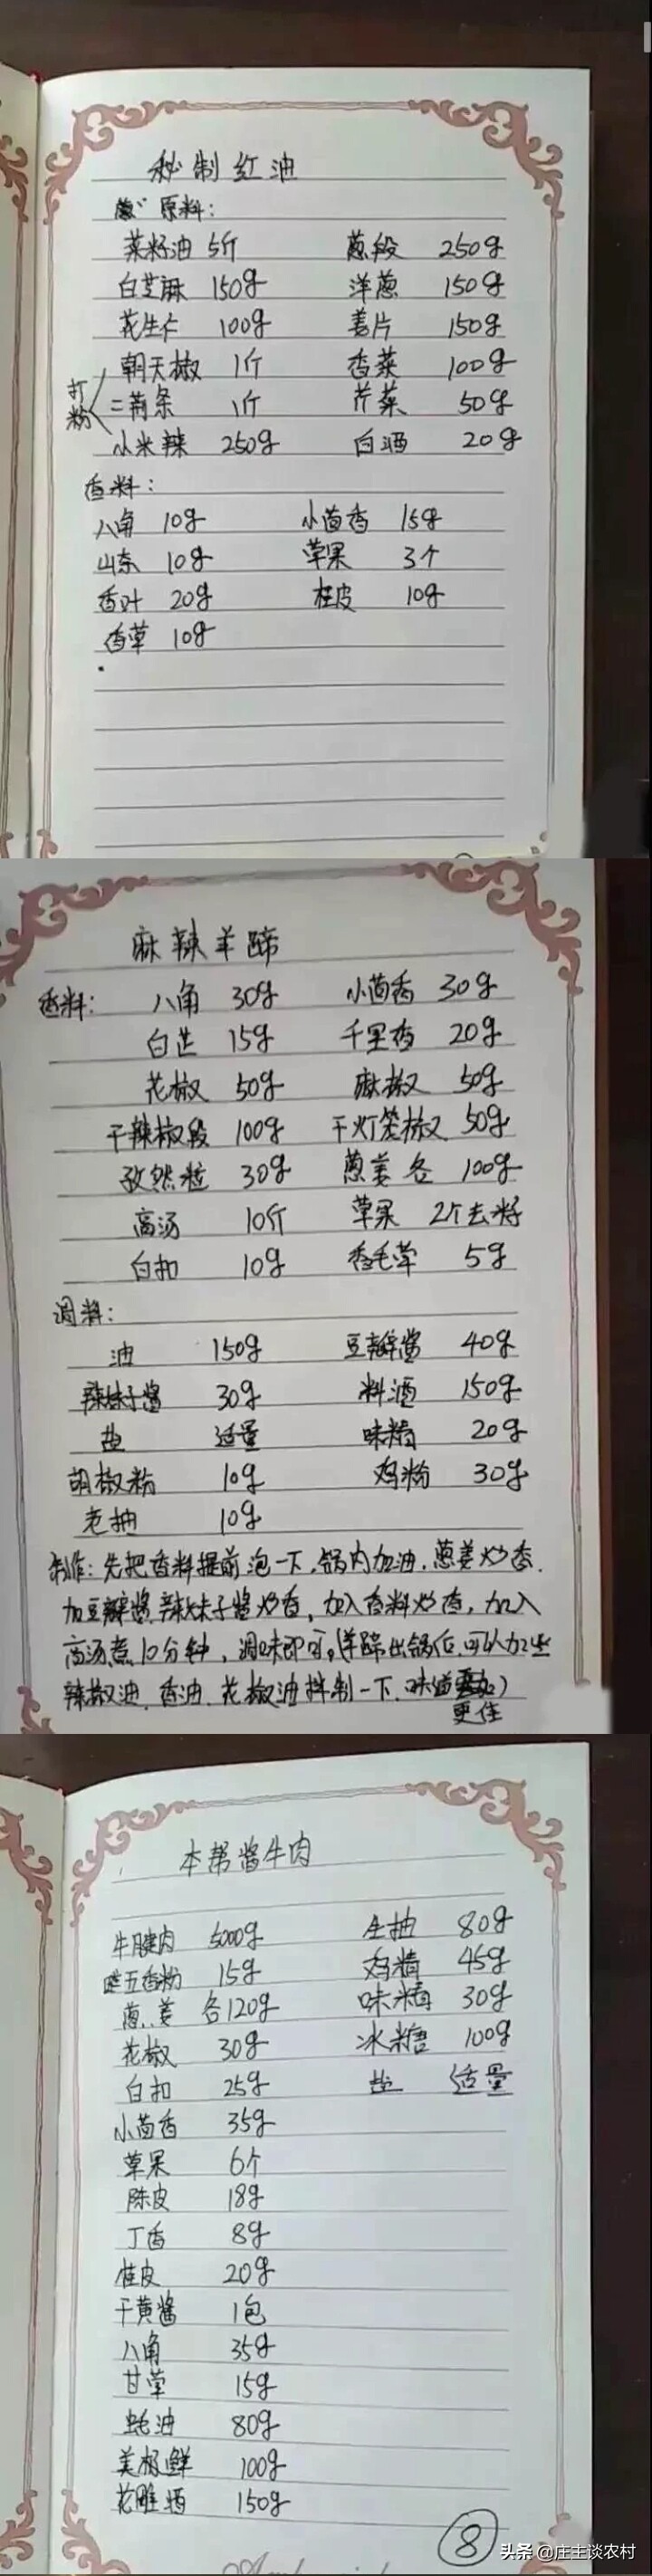 秘制红油
原料：
菜籽油 5斤 葱段 250g
白芝麻 150g 洋葱 150g
花生仁 100g 姜片 150g
朝天椒 1斤 香菜 100g
打粉 二荆条 1斤 芹菜 50g
小米辣 250g 白酒 20g
香料：
八角 10g 小茴香 15g
山奈 10g 草果 3个
香叶 20g 桂皮 10g
香草 10g
麻辣羊蹄
香料： 八角 30g 小茴香 30g
白芷 15g 千里香 20g
花椒 50g 麻椒 50g
干辣椒段 100g 干灯笼椒 50g
孜然粒 30g 葱姜各 100g
高汤 10斤 草果 2个去籽
白扣 10g 香毛草 5g
调料：
油 150g 豆瓣酱 40g
辣妹子酱 30g 料酒 150g
盐 适量 味精 20g
胡椒粉 10g 鸡粉 30g
老抽 10g
制作：先把香料提前泡一下，锅内加油，葱姜炒香，
加豆瓣酱，辣妹子酱炒香，加入香料炒香，加入
高汤煮10分钟，调味即可。（羊蹄出锅后，可以加些
辣椒油，香油，花椒油拌制一下，味道
更佳）
本帮酱牛肉
牛腱肉 5000g 生抽 80g
五香粉 15g 鸡精 45g
葱、姜 各120g 味精 30g
花椒 30g 冰糖 100g
白扣 25g 盐 适量
小茴香 35g
草果 6个
陈皮 18g
丁香 8g
桂皮 20g
干黄酱 1包
八角 35g
甘草 15g
蚝油 80g
美极鲜 100g
花雕酒 150g
8
头条 @庄主谈农村